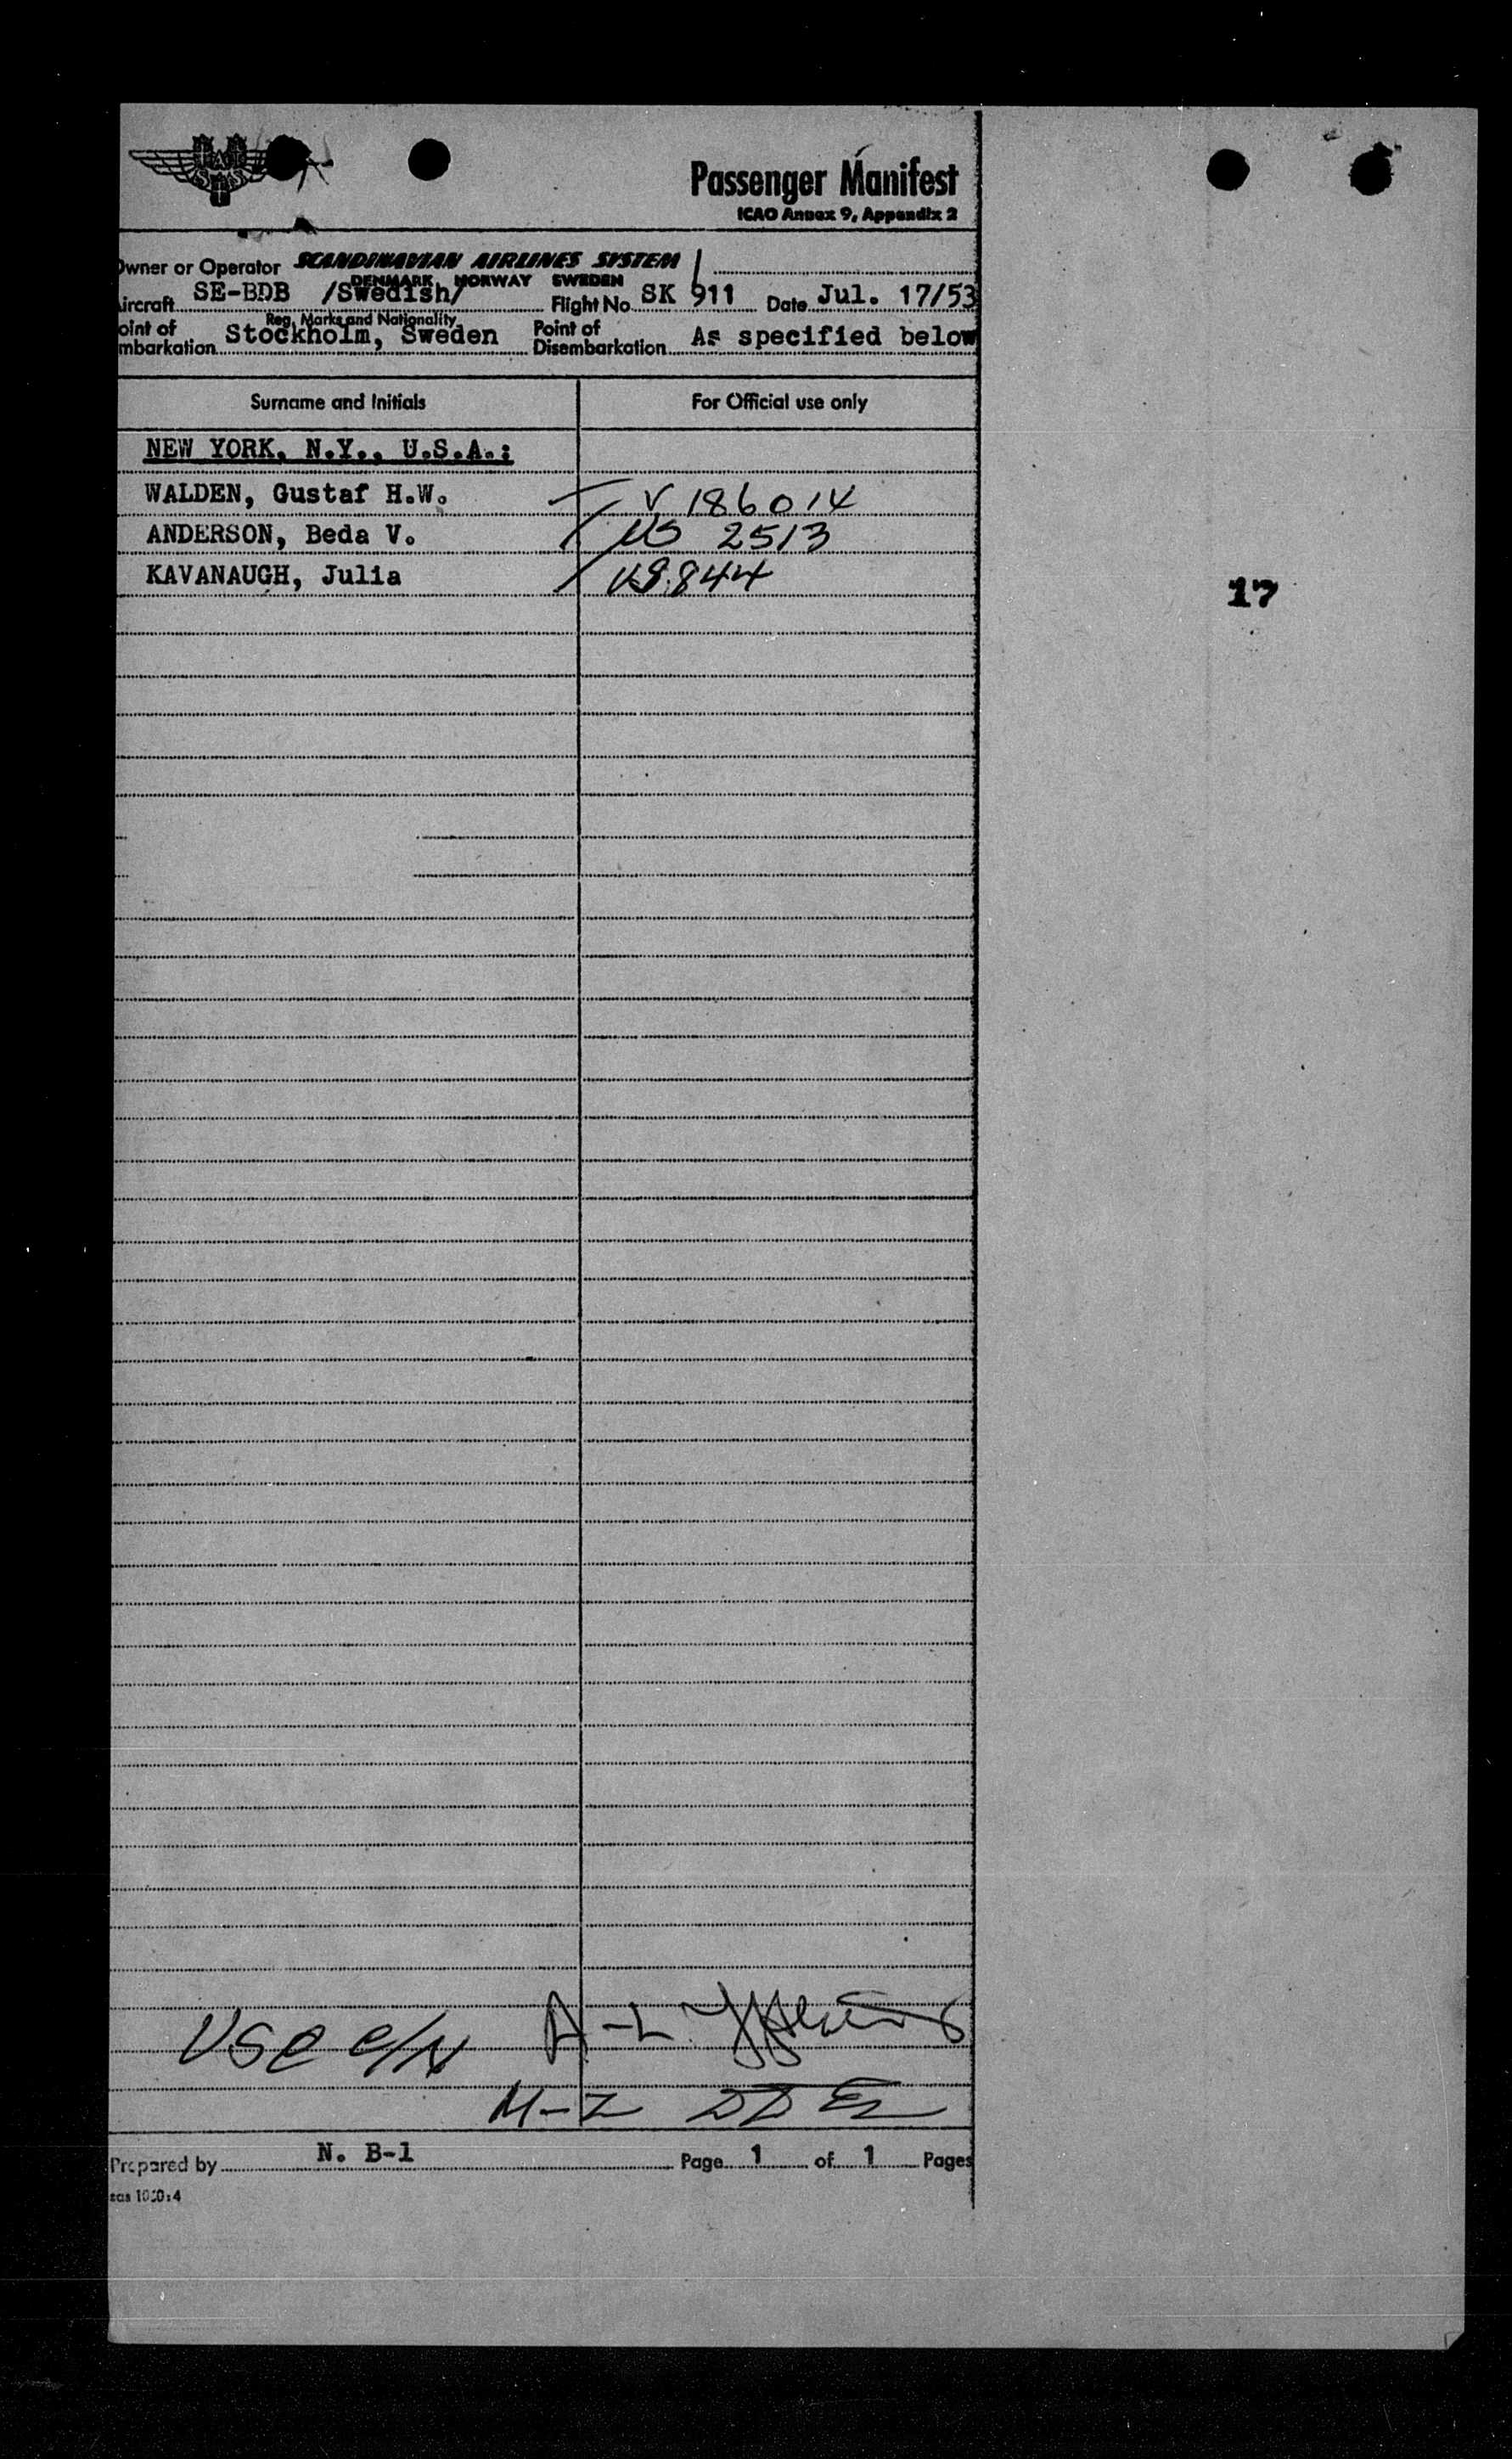 Passenger Manifest
ICAO Annex 9, Appendix 2
Owner or Operator SCANDINAVIAN AIRLINES SYSTEM
DENMARK NORWAY SWEDEN
ircraft SE-BDB /Swedish/ Flight No. SK 911 Date Jul. 17/53
Reg. Marks and Nationality
oint of mbarkation Stockholm, Sweden Point of Disembarkation As specified below
Surname and Initials For Official use only
NEW YORK, N.Y., U.S.A.:
WALDEN, Gustaf H.W. V 186014
ANDERSON, Beda V. US 2513
KAVANAUGH, Julia US 844
17
A-L
M-Z
Prepared by N. B-1 Page 1 of 1 Pages